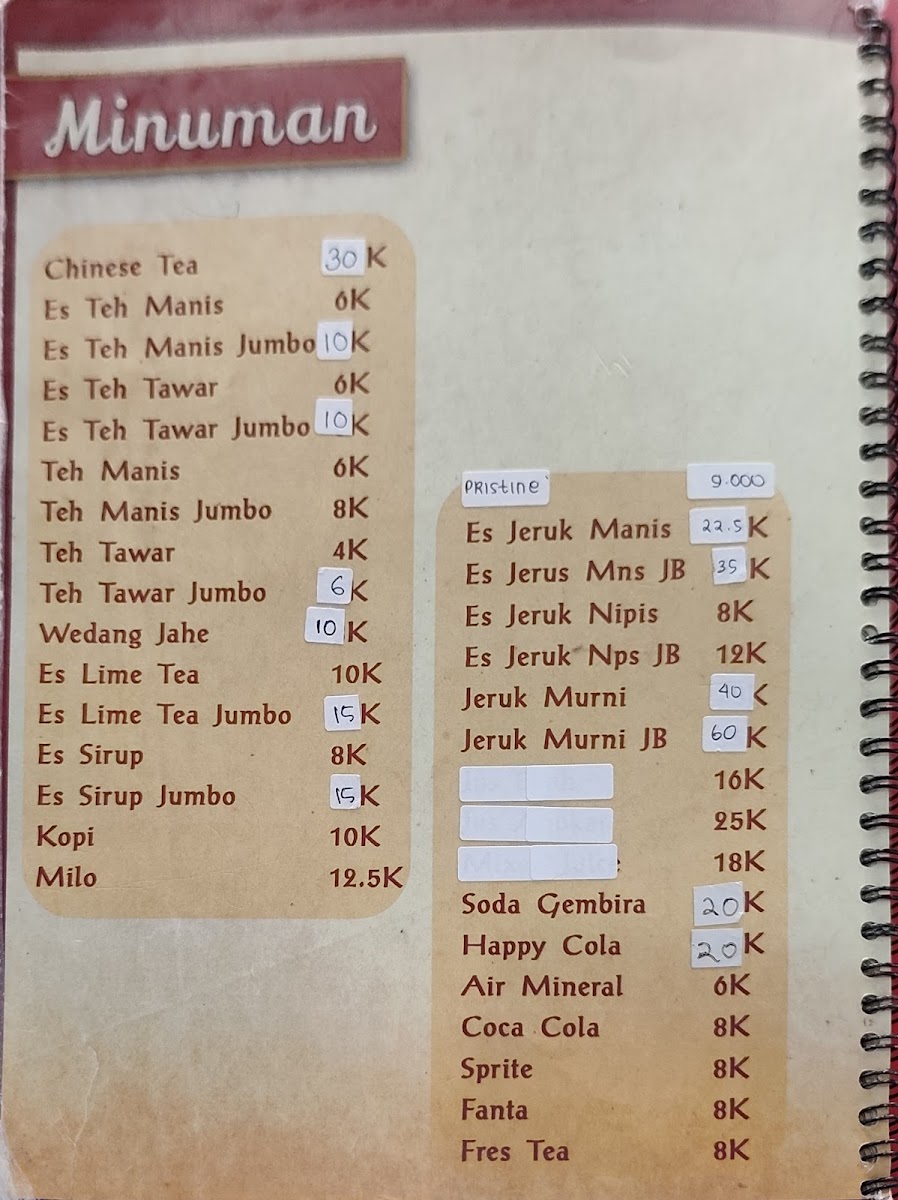 Minuman
Chinese Tea 30K
Es Teh Manis 6K
Es Teh Manis Jumbo 10K
Es Teh Tawar 6K
Es Teh Tawar Jumbo 10K
Teh Manis 6K
Teh Manis Jumbo 8K
Teh Tawar 4K
Teh Tawar Jumbo 6K
Wedang Jahe 10K
Es Lime Tea 10K
Es Lime Tea Jumbo 15K
Es Sirup 8K
Es Sirup Jumbo 15K
Kopi 10K
Milo 12.5K
PRistine 9.000
Es Jeruk Manis 22.5K
Es Jerus Mns JB 35K
Es Jeruk Nipis 8K
Es Jeruk Nps JB 12K
Jeruk Murni 40K
Jeruk Murni JB 60K
16K
25K
18K
Soda Gembira 20K
Happy Cola 20K
Air Mineral 6K
Coca Cola 8K
Sprite 8K
Fanta 8K
Fres Tea 8K